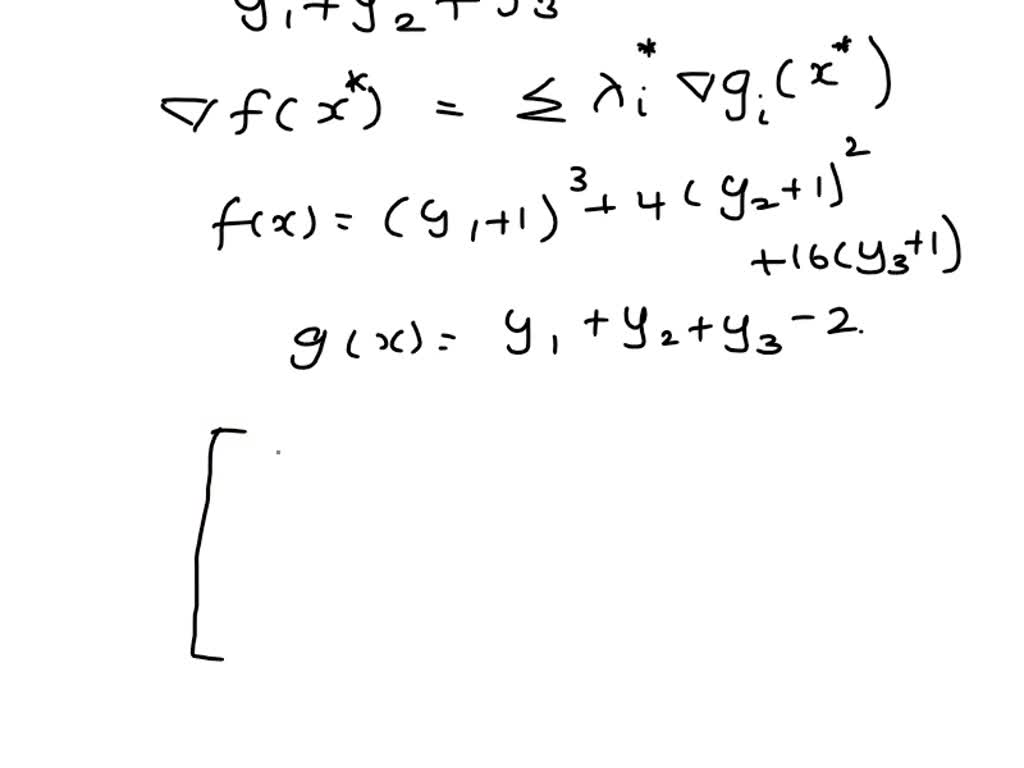 y₁+y₂+y₃
∇f(x*) = ≤ λᵢ* ∇gᵢ(x*)
f(x) = (y₁+1)³+4(y₂+1)²
+16(y₃+1)
g(x) = y₁+y₂+y₃-2.